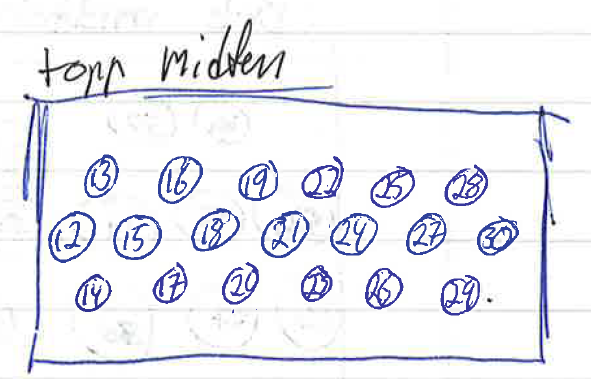 topp midten
13 16 19 22 25 28
12 15 18 21 24 27 30
14 17 20 23 26 29